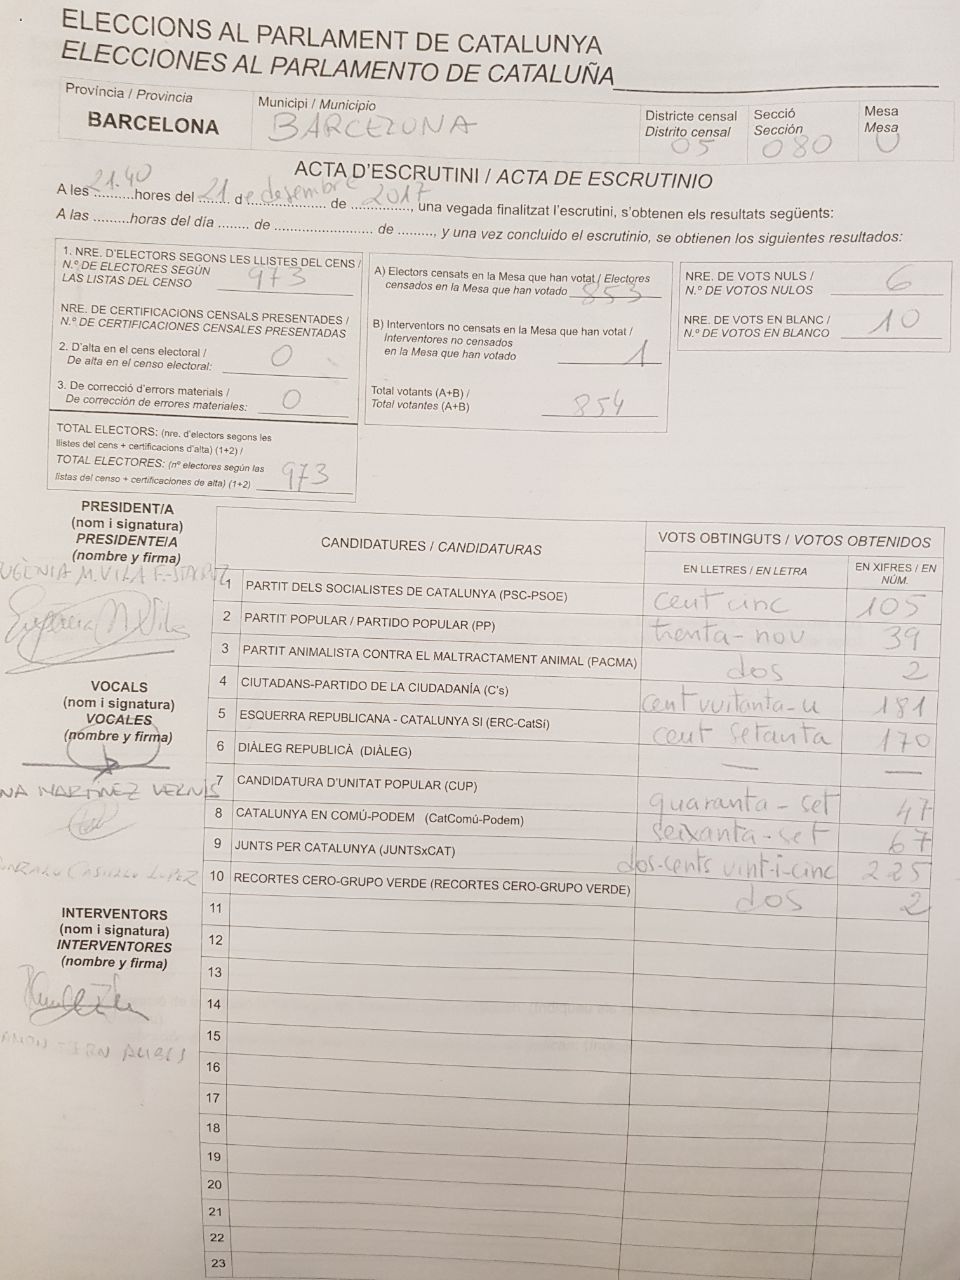 ELECCIONS AL PARLAMENT DE CATALUNYA
ELECCIONES AL PARLAMENTO DE CATALUÑA
Província / Provincia
BARCELONA
Municipi / Municipio
BARCELONA
Districte censal
Distrito censal
05
Secció
Sección
080
Mesa
Mesa
U
ACTA D'ESCRUTINI / ACTA DE ESCRUTINIO
A les 21.40 hores del 21 de desembre de 2017, una vegada finalitzat l'escrutini, s'obtenen els resultats següents:
A las .........horas del día ........ de ........................ de ........., y una vez concluido el escrutinio, se obtienen los siguientes resultados:
1. NRE. D'ELECTORS SEGONS LES LLISTES DEL CENS /
N.º DE ELECTORES SEGÚN
LAS LISTAS DEL CENSO 973
NRE. DE CERTIFICACIONS CENSALS PRESENTADES /
N.º DE CERTIFICACIONES CENSALES PRESENTADAS
2. D'alta en el cens electoral /
De alta en el censo electoral: 0
3. De correcció d'errors materials /
De corrección de errores materiales: 0
TOTAL ELECTORS: (nre. d'electors segons les
llistes del cens + certificacions d'alta) (1+2) /
TOTAL ELECTORES: (nº electores según las
listas del censo + certificaciones de alta) (1+2) 973
A) Electors censats en la Mesa que han votat / Electores
censados en la Mesa que han votado 853
B) Interventors no censats en la Mesa que han votat /
Interventores no censados
en la Mesa que han votado 1
Total votants (A+B) /
Total votantes (A+B) 854
NRE. DE VOTS NULS /
N.º DE VOTOS NULOS 6
NRE. DE VOTS EN BLANC /
N.º DE VOTOS EN BLANCO 10
PRESIDENT/A
(nom i signatura)
PRESIDENTE/A
(nombre y firma)
VOCALS
(nom i signatura)
VOCALES
(nombre y firma)
MARTÍNEZ
INTERVENTORS
(nom i signatura)
INTERVENTORES
(nombre y firma)
CANDIDATURES / CANDIDATURAS
VOTS OBTINGUTS / VOTOS OBTENIDOS
EN LLETRES / EN LETRA
EN XIFRES / EN NÚM.
1 PARTIT DELS SOCIALISTES DE CATALUNYA (PSC-PSOE) cent cinc 105
2 PARTIT POPULAR / PARTIDO POPULAR (PP) trenta-nou 39
3 PARTIT ANIMALISTA CONTRA EL MALTRACTAMENT ANIMAL (PACMA) dos 2
4 CIUTADANS-PARTIDO DE LA CIUDADANÍA (C's) cent vuitanta-u 181
5 ESQUERRA REPUBLICANA - CATALUNYA SI (ERC-CatSí) cent setanta 170
6 DIÀLEG REPUBLICÀ (DIÀLEG) — —
7 CANDIDATURA D'UNITAT POPULAR (CUP) quaranta-set 47
8 CATALUNYA EN COMÚ-PODEM (CatComú-Podem) seixanta-set 67
9 JUNTS PER CATALUNYA (JUNTSxCAT) dos-cents vint-i-cinc 225
10 RECORTES CERO-GRUPO VERDE (RECORTES CERO-GRUPO VERDE) dos 2
11
12
13
14
15
16
17
18
19
20
21
22
23